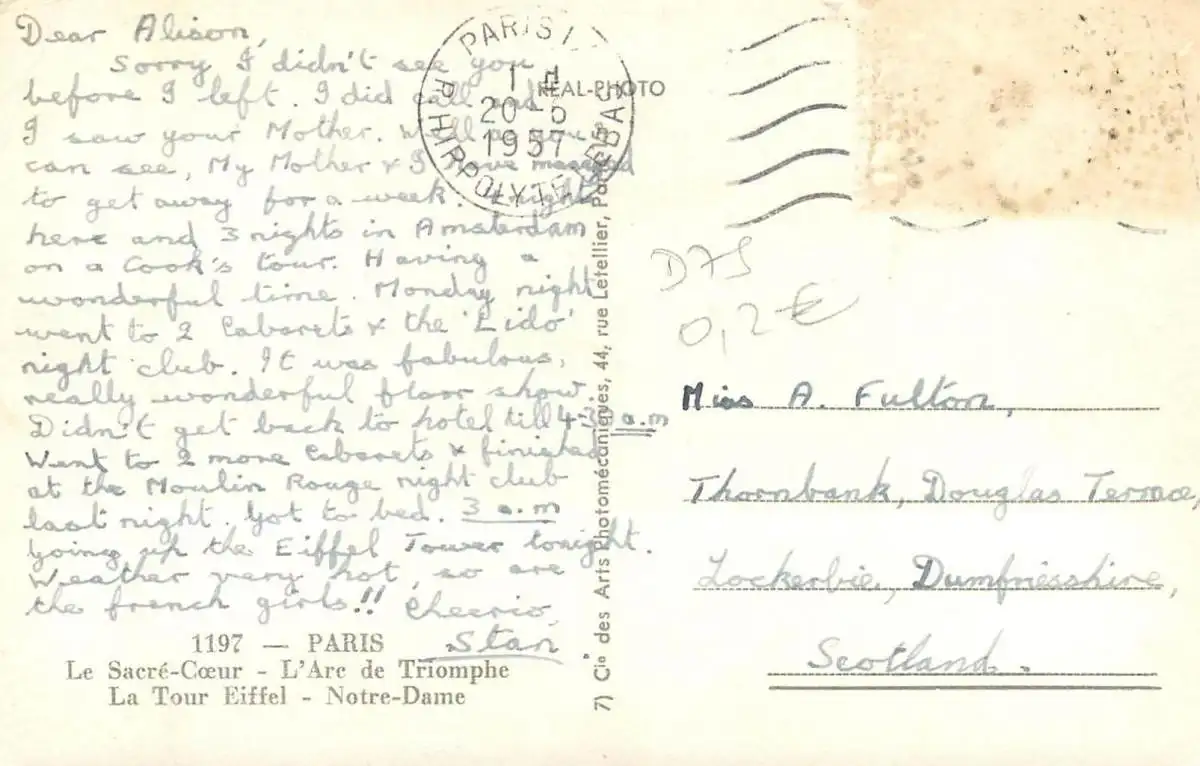 Dear Alison,
Sorry I didn't see you
before I left. I did call and
I saw your Mother. Well as you
can see, My Mother & I have managed
to get away for a week. nights
here and 3 nights in Amsterdam
on a Cook's tour. Having a
wonderful time. Monday night
went to 2 Cabarets & the 'Lido'
night club. It was fabulous,
really wonderful floor show.
Didn't get back to hotel till 4-30 a.m
Went to 2 more Cabarets & finished
at the Moulin Rouge night club
last night. Got to bed. 3 a.m
Going up the Eiffel Tower tonight.
Weather very hot, so are
the french girls!! Cheerio,
Stan
1197 — PARIS
Le Sacré-Cœur - L'Arc de Triomphe
La Tour Eiffel - Notre-Dame
PARIS I
1 H
20-6
1957
REAL-PHOTO
7) Cie des Arts Photomécaniques, 44, rue Letellier, Paris
D75
0,2 €
Miss A. Fulton,
Thornbank, Douglas Terrace,
Lockerbie, Dumfriesshire,
Scotland.